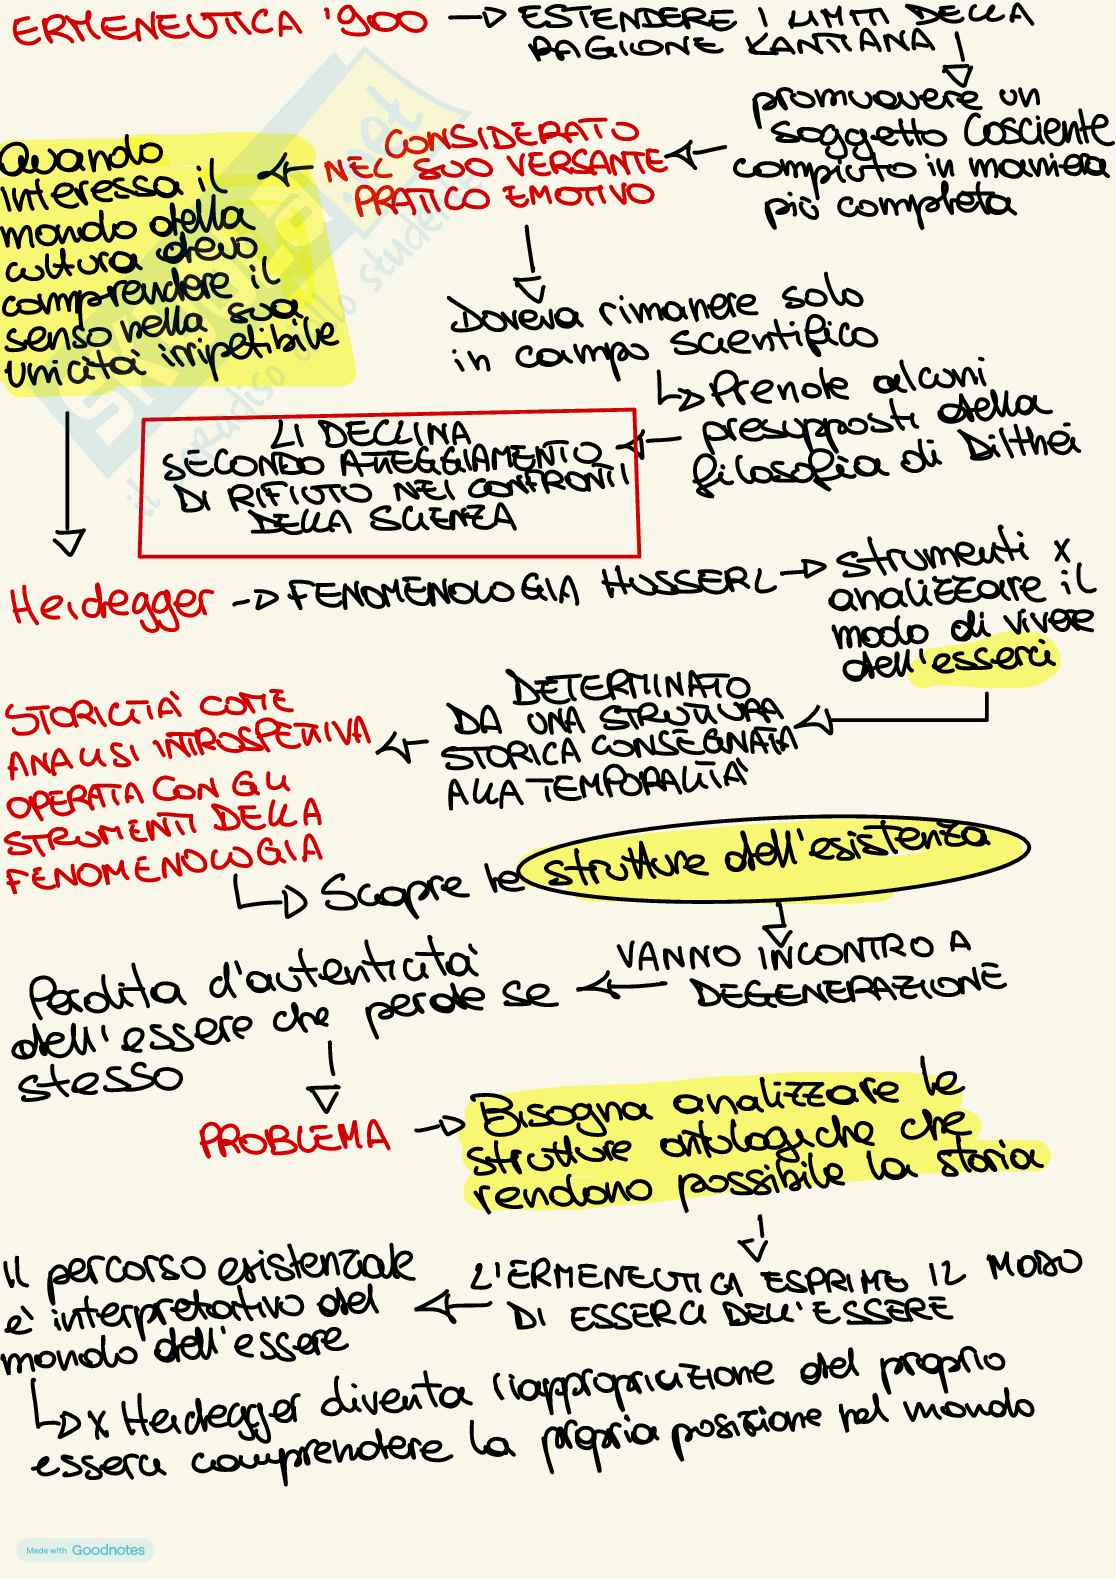 ERMENEUTICA '900 → ESTENDERE I LIMITI DELLA
RAGIONE KANTIANA
promuovere un
soggetto cosciente
compiuto in maniera
più completa
CONSIDERATO
NEL SUO VERSANTE
PRATICO EMOTIVO
Quando
interessa il
mondo della
cultura devo
comprendere il
senso nella sua
unicità irripetibile
Doveva rimanere solo
in campo scientifico
Prende alcuni
presupposti della
filosofia di Dilthei
LI DECLINA
SECONDO ATTEGGIAMENTO
DI RIFIUTO NEI CONFRONTI
DELLA SCIENZA
Heidegger → FENOMENOLOGIA HUSSERL → strumenti x
analizzare il
modo di vivere
dell'esserci
DETERMINATO
DA UNA STRUTTURA
STORICA CONSEGNATA
ALLA TEMPORALITÀ
STORICITÀ COME
ANALISI INTROSPETTIVA
OPERATA CON GLI
STRUMENTI DELLA
FENOMENOLOGIA
Scopre le strutture dell'esistenza
VANNO INCONTRO A
DEGENERAZIONE
Perdita d'autenticità
dell'essere che perde se
stesso
PROBLEMA → Bisogna analizzare le
strutture ontologiche che
rendono possibile la storia
L'ERMENEUTICA ESPRIME IL MODO
DI ESSERCI DELL'ESSERE
Il percorso esistenziale
è interpretativo del
mondo dell'essere
x Heidegger diventa riappropriazione del proprio
esserci comprendere la propria posizione nel mondo
Made with Goodnotes